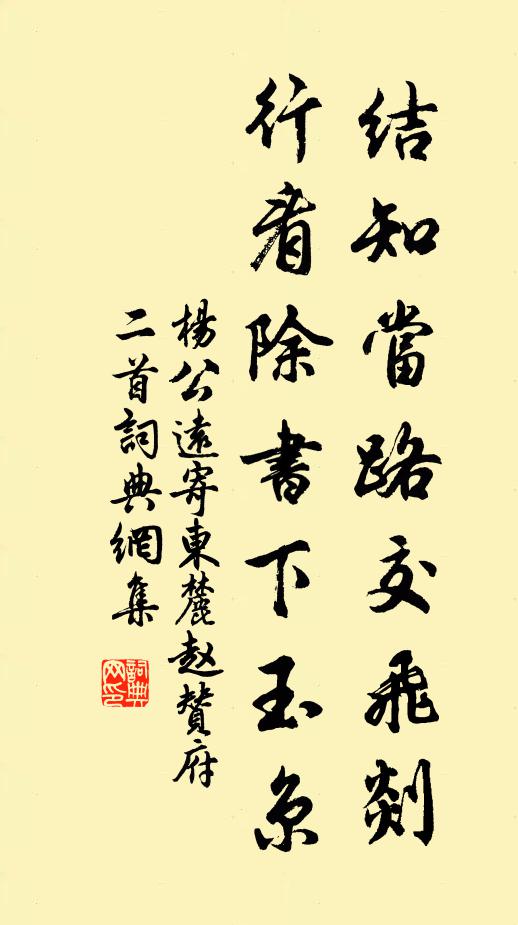 結知當路交飛剡
行看除書下玉京
楊公遠寄東麓趙贊府
二首詞典網集
詞典网印